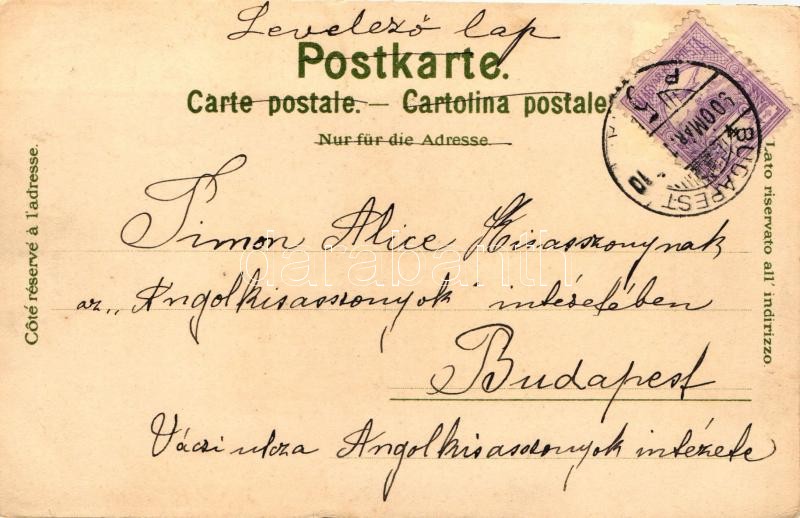 Levelező lap
Postkarte.
Carte postale. — Cartolina postale
Nur für die Adresse.
Côté réservé à l'adresse.
Lato riservato all' indirizzo.
BUDAPEST
900 MÁR
10
Timon Alice Kisasszonynak
az „Angolkisasszonyok" intézetében
Budapest
Váczi utcza Angolkisasszonyok intézete
darabanth